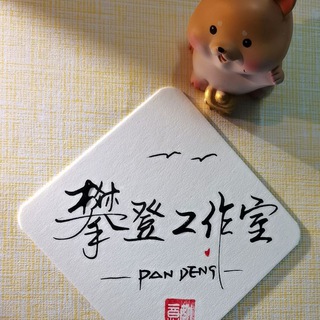 攀登工作室
PAN DENG